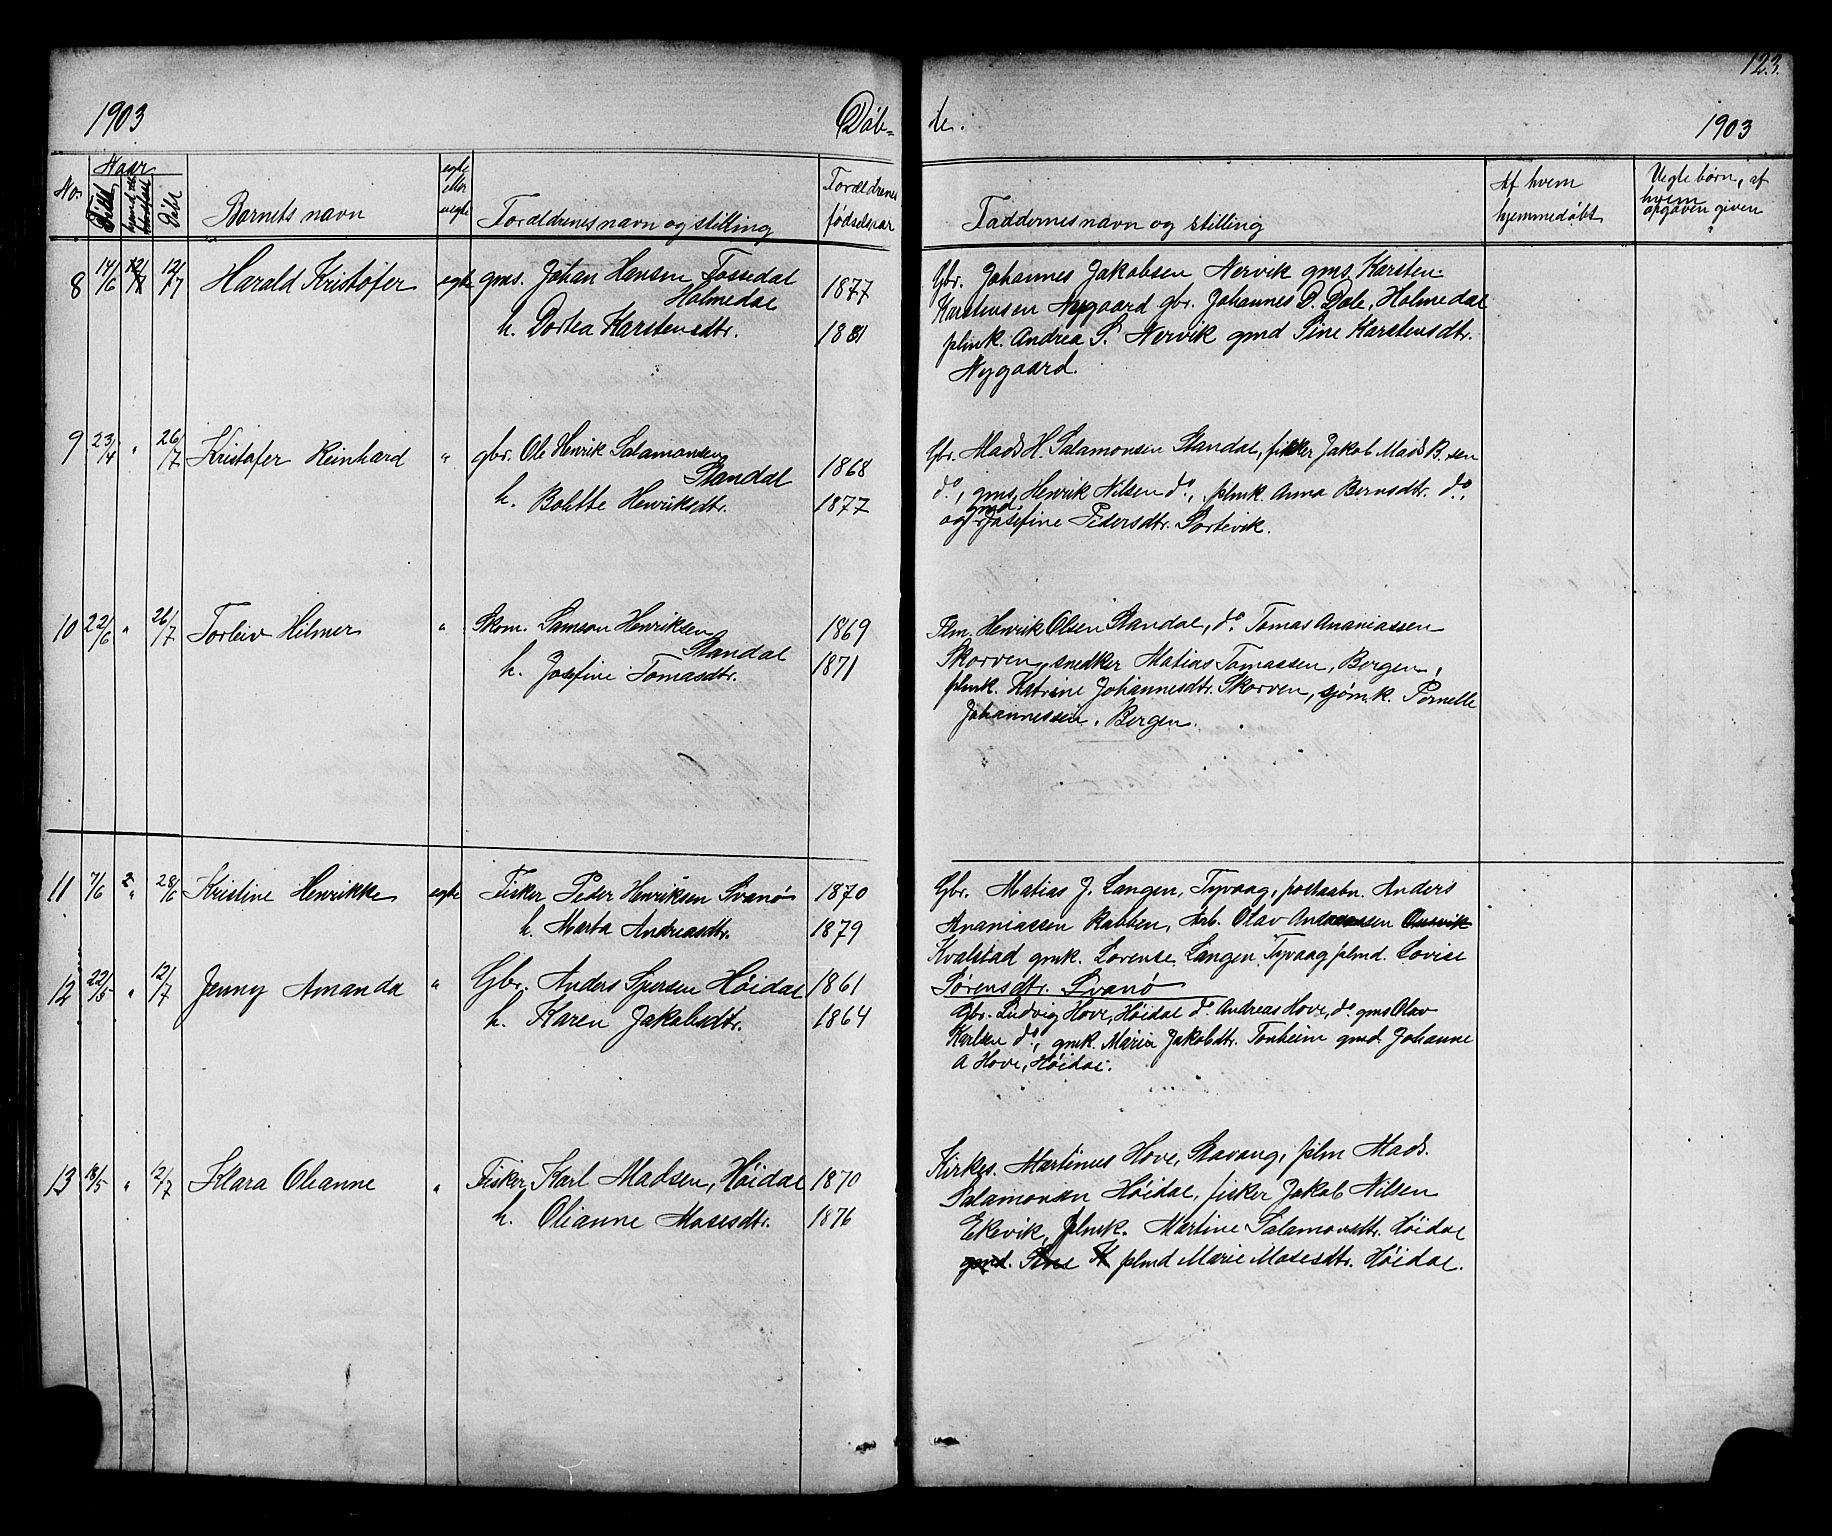 123.
1903
Døb-
te.
1903
No.
Naar
Født
Døbt
Barnets navn
egte eller uegte
Forældrenes navn og stilling
Forældrenes fødselsaar
Faddernes navn og stilling
Af hvem hjemmedøbt
Uegte børn, af hvem opgaven given
8 14/6 12/7 Harald Kristofer egte gms. Johan Hansen Fossedal 1877
Holmedal
h. Dortea Karstensdtr. 1881
Gbr. Johannes Jakobsen Nervik gms. Karsten
Karstensen Nygaard gbr. Johannes D. Dale, Holmedal
plmk. Andrea S. Nervik gmd Sine Karstensdtr.
Nygaard.
9 23/4 " 26/7 Kristofer Reinhard " gbr. Ole Henrik Salamonsen
Standal 1868
h. Bolette Henriksdtr. 1877
Gbr. Mads H. Salamonsen Standal, fisker Jakob Mads B.sen
do, gms. Henrik Nilsen do, plmk. Anna Berntsdtr. do,
og gmd. Josefine Pedersdtr. Sortevik.
10 22/6 " 26/7 Torleiv Hilmer " Skom. Samson Henriksen 1869
Standal
h. Josefine Tomasdtr. 1871
Plm. Henrik Olsen Standal, do Tomas Ananiassen
Skorven, snedker Matias Tomassen, Bergen,
plmk. Katrine Johannesdtr. Skorven, sjømk. Pernelle
Johannessen, Bergen.
11 7/6 " 28/6 Kristine Henrikke egte Fisker Peder Henriksen Svanø 1870
h. Marta Andreasdtr. 1879
Gbr. Matias J. Langen, Tyvaag, postaabn. Anders
Ananiassen Rabben, Arb. Olav Andreassen
Kvalstad gmk. Lorense Langen Tyvaag plmd. Lovise
Sørensdtr. Svanø
12 22/5 " 12/7 Jenny Amanda " Gbr. Anders Spersen Høidal 1861
h. Karen Jakobsdtr. 1864
Gbr. Ludvig Hove, Høidal do Andreas Hove, do gms Olav
Karlsen do, gmk. Maria Jakobdtr. Tonheim gmd Johanne
A Hove, Høidal.
13 18/5 " 12/7 Klara Olianne " Fisker Karl Madsen, Høidal 1870
h. Olianne Mosesdtr. 1876
Kirkes. Martinus Hove, Stavang, plm Mads
Salamonsen Høidal, fisker Jakob Nilsen
Ekevik, plmk. Martine Salamonsdtr. Høidal
gmd. plmd Marie Mosesdtr. Høidal.